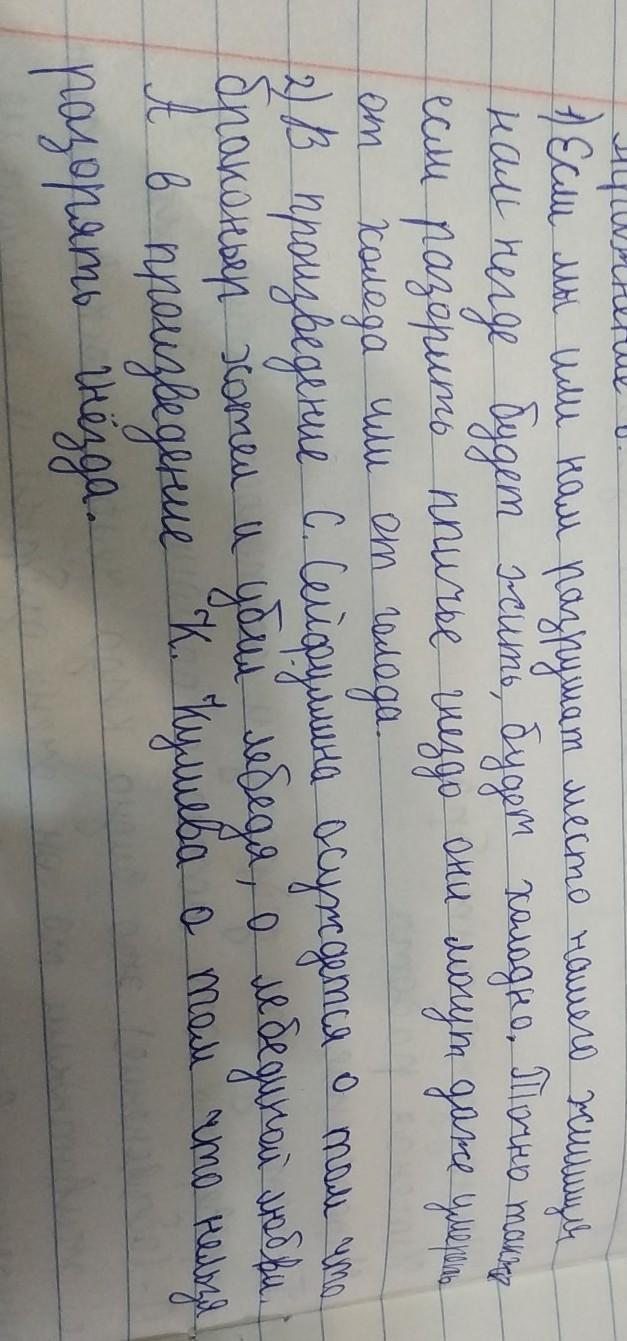 1) Если мы или нам разрушат место нашего жилища
нам негде будет жить, будет холодно. Точно также
если разорить птичье гнездо они могут даже умереть
от холода или от голода.
2) В произведение С. Сейфуллина осуждется о том что
браконьер хотел и убил лебедя, о лебединой любви.
А в произведение К. Кулиева о том что нельзя
разорять гнёзда.